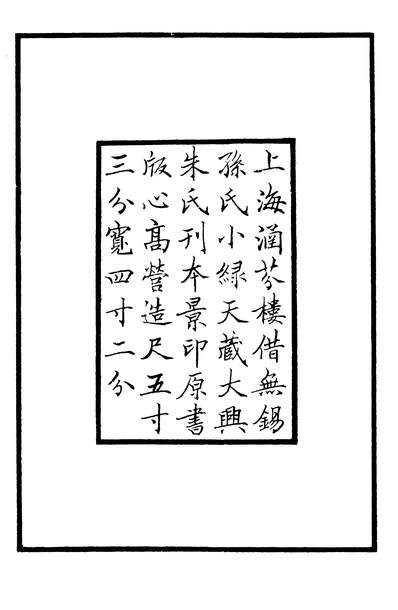 上海涵芬樓借無錫
孫氏小綠天藏大興
朱氏刊本景印原書
版心高營造尺五寸
三分寬四寸二分